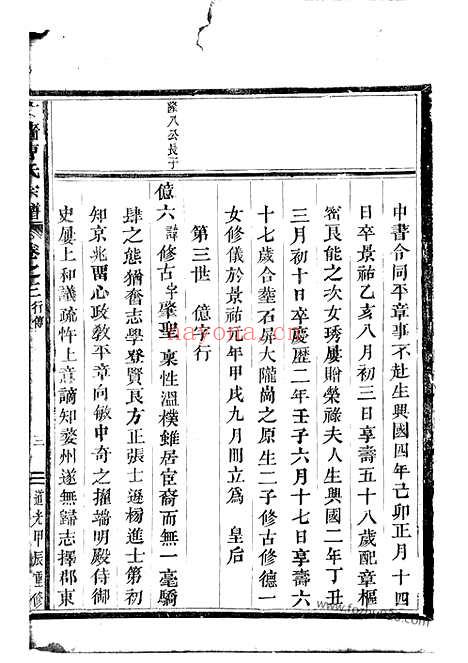 中書令同平章事不赴生興國四年己卯正月十四
日卒景祐乙亥八月初三日享壽五十八歲配章樞
密良能之次女琇屢贈榮祿夫人生興國二年丁丑
三月初十日卒慶歷二年壬子六月十七日享壽六
十七歲合塟石屏大隴崗之原生二子修古修德一
女修儀於景祐元年甲戌九月冊立爲 皇后
第三世 億字行
億六諱修古字肇聖稟性溫樸雖居宦裔而無一毫驕
肆之態猶奮志學登賢良方正張士遜楊進士第初
知京兆畱心政敎平章向敏中奇之擢端明殿侍御
史屢上和議疏忤上意謫知婺州遂無歸志擇郡東
公長子
曹氏宗譜
卷之二 行傳
三
道光甲辰重修
nayona.cn
www.fozhu920.com